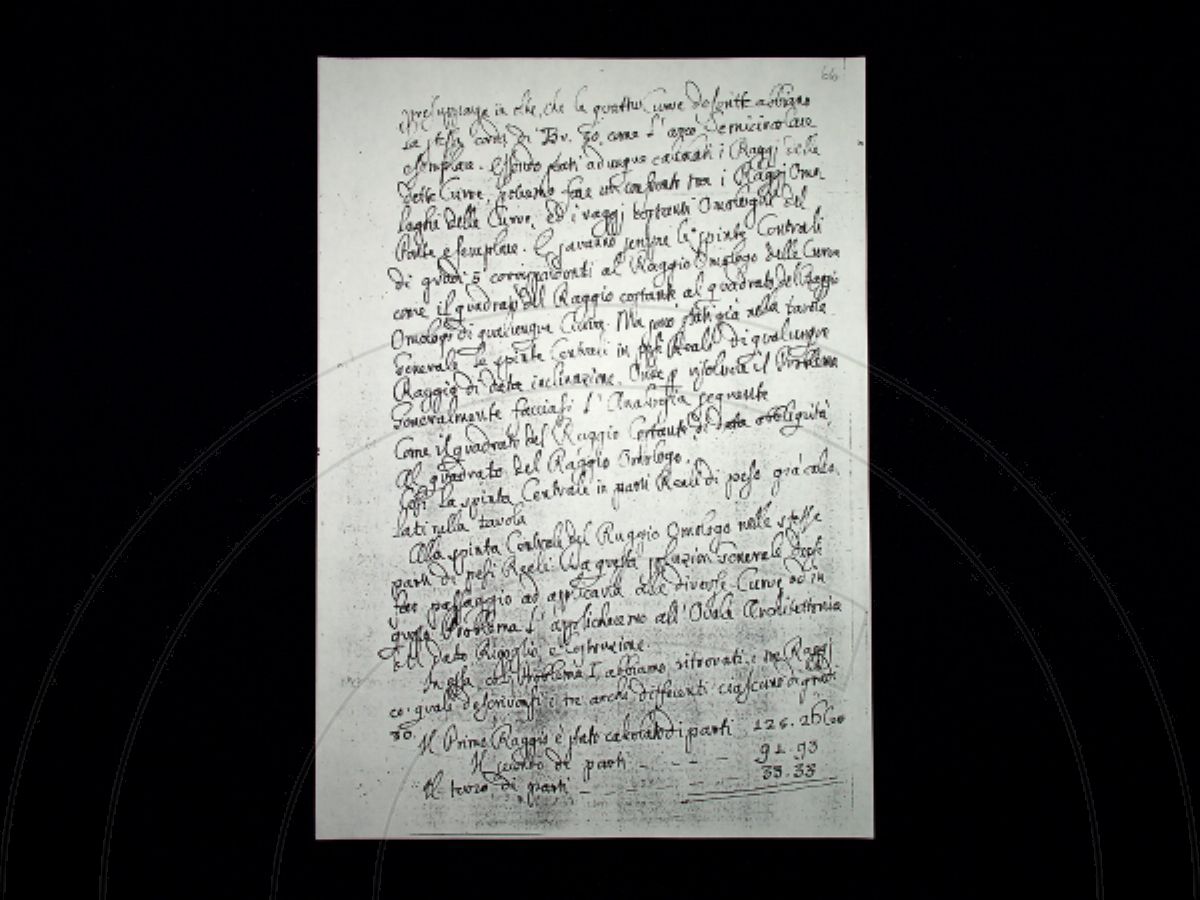 66
in oltre, che le quattro Curve descritte abbiano
la stessa corda di Br. 30. come l'arco Semicircolare
esemplare. Essendo stati adunque calcolati i Raggi delle
dette Curve, potremo fare un confronto tra i Raggi Omo
loghi delle Curve, ed i raggi costanti Omologhi del
Ponte esemplare. E saranno sempre le spinte Centrali
di gradi 5 corrispondenti al Raggio Omologo delle Curve
come il quadrato del Raggio costante al quadrato del Raggio
Omologo di qualunque Curva. Ma sono stati già nella tavola
Generale le spinte Centrali in Reali di qualunque
Raggio di data inclinazione. Onde p risolvere il Problema
Generalmente facciasi l'Analogia seguente
Come il quadrato del Raggio Costante di data obbliquità
Al quadrato del Raggio Omologo.
Così la spinta Centrale in parti Reali di peso già calco
lati nella tavola
Alla spinta Centrale del Raggio Omologo nelle stesse
parti di pesi Reali. Da questa soluzione Generale
fare passaggio ad applicarla alle diverse Curve ed in
questo Problema l'applicheremo all'Ovale Architettonico
di dato Rigoglio e Costruzione.
In essa col Problema I, abbiamo ritrovati i tre Raggi
co' quali descrivonsi i tre archi differenti ciascuno di gradi
30.
Il Primo Raggio è stato calcolato di parti 126.
Il secondo di parti - - - - 92.93
Il terzo di parti - - - - 33.33